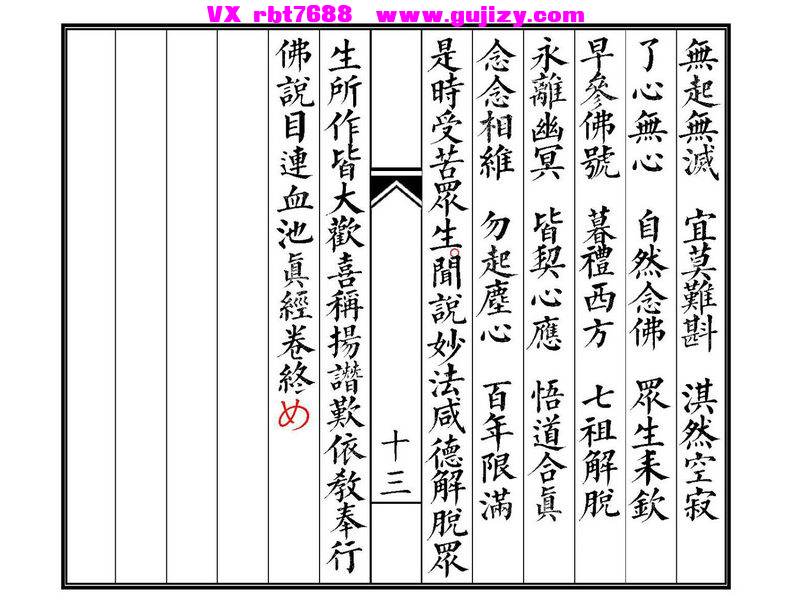 VX rbt7688 www.gujizy.com
無起無滅 宜莫難斟 淇然空寂
了心無心 自然念佛 眾生耒欽
早參佛號 暮禮西方 七祖解脫
永離幽冥 皆契心應 悟道合眞
念念相維 勿起塵心 百年限滿
是時受苦眾生聞說妙法咸德解脫眾
十三
生所作皆大歡喜稱揚讚歎依教奉行
佛說目連血池眞經卷終め